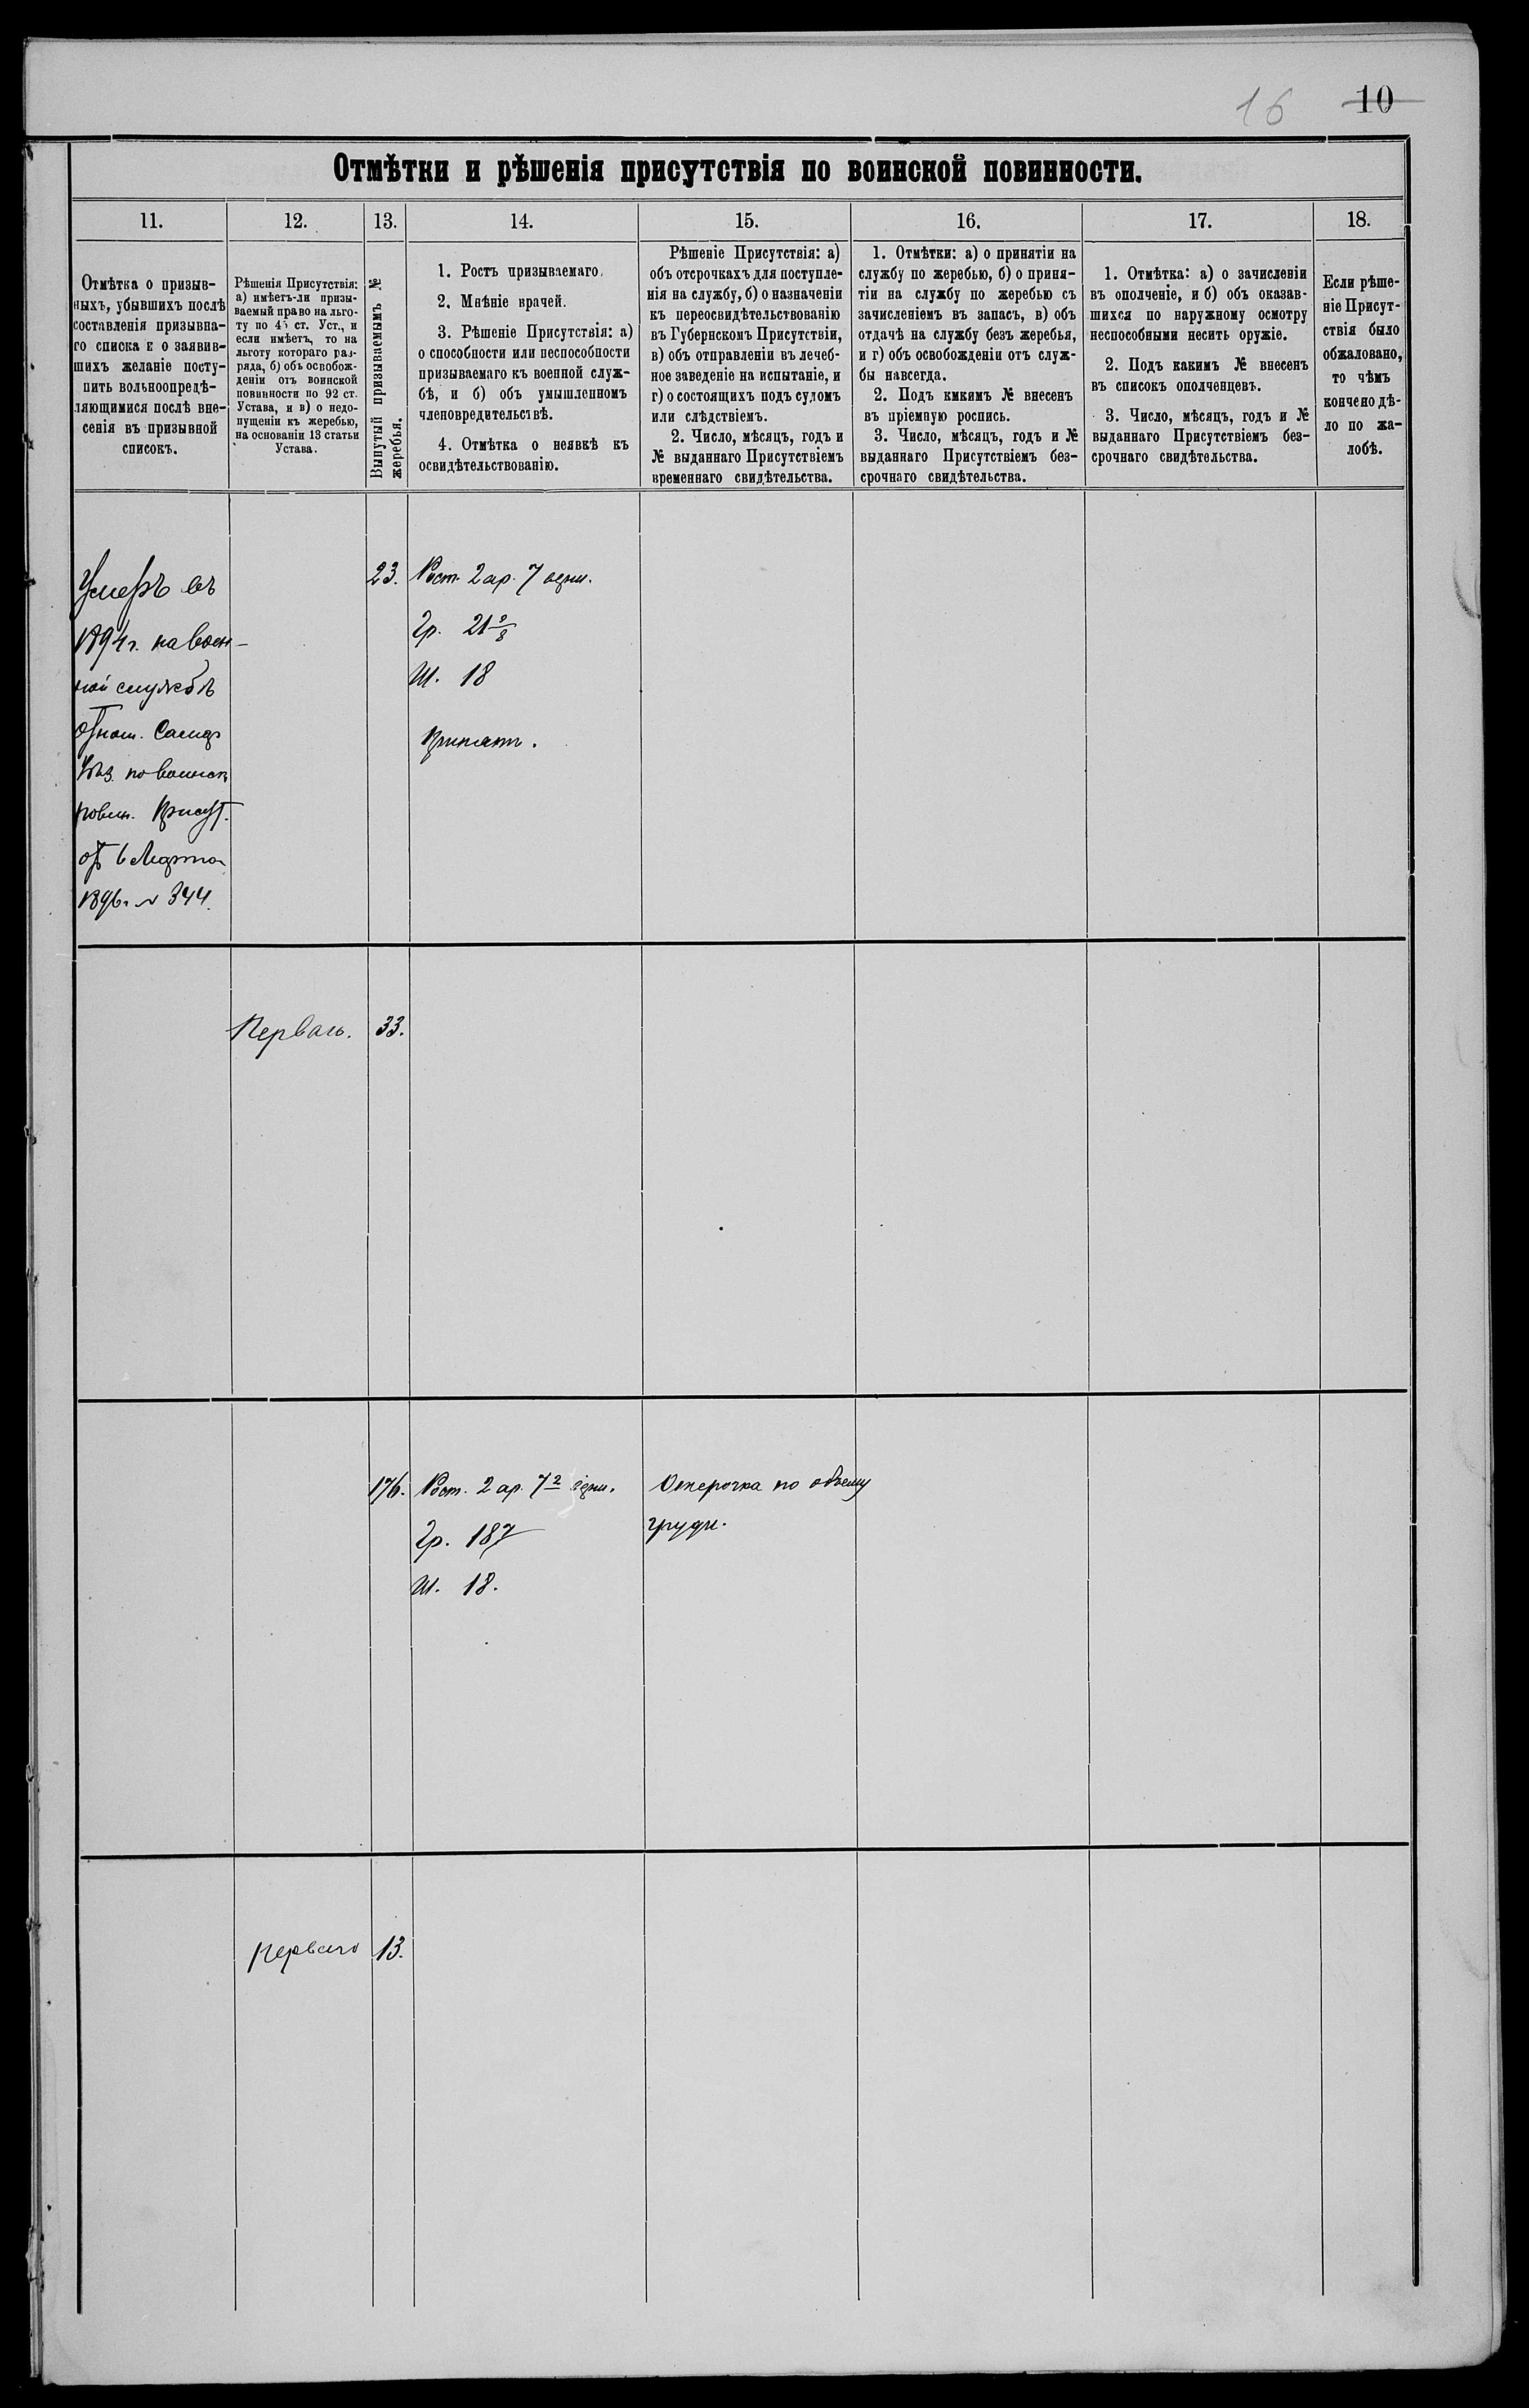 16 10
Отмѣтки и рѣшенія присутствія по воинской повинности.
11.
12.
13.
14.
15.
16.
17.
18.
Отмѣтка о призыв-
ныхъ, убывшихъ послѣ
составленія призывна-
го списка и о заявив-
шихъ желаніе посту-
пить вольноопредѣ-
ляющимися послѣ вне-
сенія въ призывной
списокъ.
Рѣшенія Присутствія:
а) имѣетъ-ли призы-
ваемый право на льго-
ту по 45 ст. Уст., и
если имѣетъ, то на
льготу котораго раз-
ряда, б) объ освобож-
деніи отъ воинской
повинности по 92 ст.
Устава, и в) о недо-
пущеніи къ жеребью,
на основаніи 13 статьи
Устава.
Вынутый призываемымъ №
жеребья.
1. Ростъ призываемаго.
2. Мнѣніе врачей.
3. Рѣшеніе Присутствія: а)
о способности или неспособности
призываемаго къ военной служ-
бѣ, и б) объ умышленномъ
членовредительствѣ.
4. Отмѣтка о неявкѣ къ
освидѣтельствованію.
Рѣшеніе Присутствія: а)
объ отсрочкахъ для поступле-
нія на службу, б) о назначеніи
къ переосвидѣтельствованію
въ Губернскомъ Присутствіи,
в) объ отправленіи въ лечеб-
ное заведеніе на испытаніе, и
г) о состоящихъ подъ судомъ
или слѣдствіемъ.
2. Число, мѣсяцъ, годъ и
№ выданнаго Присутствіемъ
временнаго свидѣтельства.
1. Отмѣтки: а) о принятіи на
службу по жеребью, б) о приня-
тіи на службу по жеребью съ
зачисленіемъ въ запасъ, в) объ
отдачѣ на службу безъ жеребья,
и г) объ освобожденіи отъ служ-
бы навсегда.
2. Подъ кмкимъ № внесенъ
въ пріемную роспись.
3. Число, мѣсяцъ, годъ и №
выданнаго Присутствіемъ без-
срочнаго свидѣтельства.
1. Отмѣтка: а) о зачисленіи
въ ополченіе, и б) объ оказав-
шихся по наружному осмотру
неспособными несить оружіе.
2. Подъ какимъ № внесенъ
въ списокъ ополченцевъ.
3. Число, мѣсяцъ, годъ и №
выданнаго Присутствіемъ без-
срочнаго свидѣтельства.
Если рѣше-
ніе Присут-
ствія было
обжаловано,
то чѣмъ
кончено дѣ-
ло по жа-
лобѣ.
Умеръ въ
1894 г. на воен-
ной службѣ
отнош.
по воинск
повин. Присут.
отъ 6 Марта
1896 г № 344.
23.
Рост. 2 ар. 7 верш.
Гр. 21 2/8
Ш. 18
Принятъ.
Перваго.
33.
176.
Рост. 2 ар. 7 2 верш.
Гр. 18
Ш. 18.
Отсрочка по объему
груди.
перваго
13.